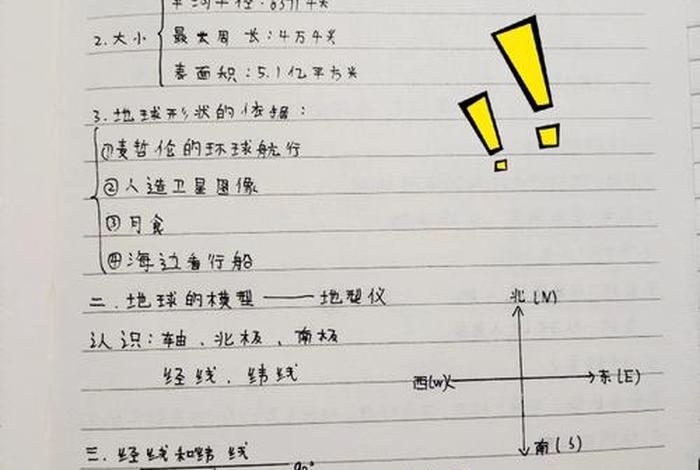 平均半径:6371千米
2.大小 最大周长:4万千米
表面积:5.1亿平方米
3.地球形状的依据:
①麦哲伦的环球航行
②人造卫星图像
③月食
④海边看行船
二.地球的模型——地型仪
北(N)
认识:轴、北极、南极
经线、纬线
西(W) 东(E)
南(S)
三.经线和纬线
90°